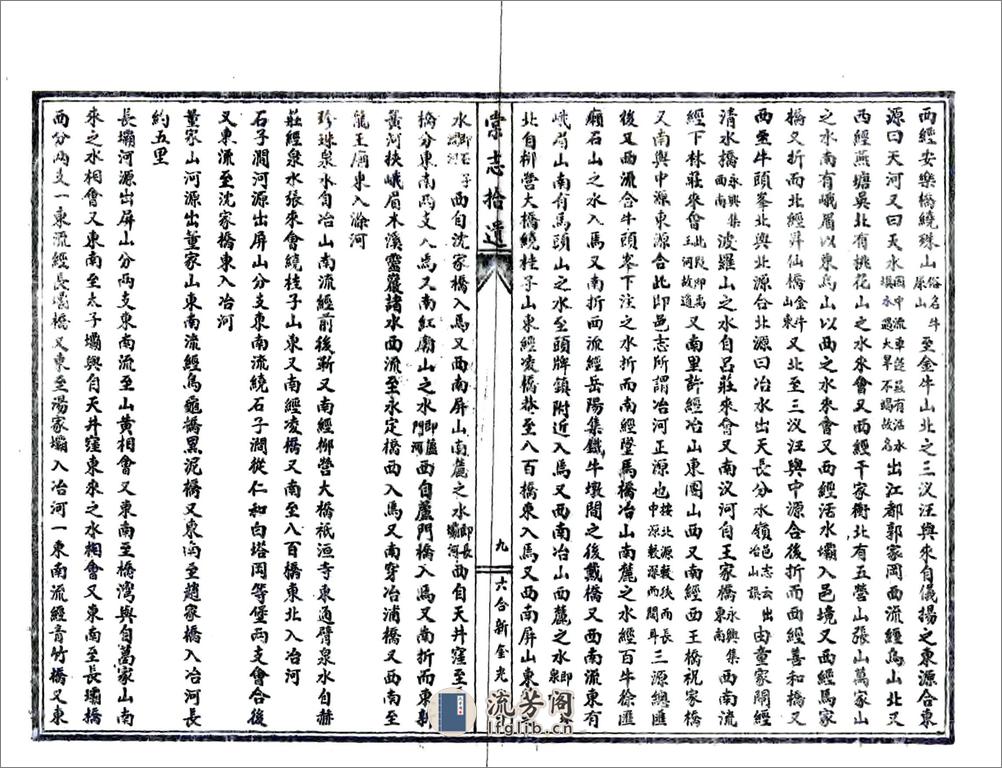 而經安樂橋繞珠山俗名牛原山至金牛山北之三汊汪與來自儀揚之東源合東
源曰天河又曰天水因中流車遶並有活水填水遇大旱不竭故名出江都郭家岡西流經烏山北又
西經燕塘吳北有桃花山之水來會又西經千家衖北有五營山張山萬家山
之水南有峨眉以東烏山以西之水來會又西經活水壩入邑境又西經馬家
橋又折而北經昇仙橋金牛山東又北至三汊汪與中源合後折而西經善和橋又
西至牛頭峯北與北源合北源曰冶水出天長分水嶺邑志云出冶山誤由童家關經
清水橋永興集西南波羅山之水自呂莊來會又南汊河自王家橋永興集東南西南流
經下林莊來會此段即禹王河故道又南里許經冶山東圌山西又南經西王橋祝家橋
又南與中源東源合此即邑志所謂冶河正源也按北源較後而長中源較深而闊耳三源總匯
後又西流合牛頭峯下注之水折而南經墮馬橋冶山南麓之水經百牛徐匯
廟石山之水入焉又南折西流經岳陽集鐵牛墩閘之後戴橋又西南流東有
峨眉山南有馬頭山之水至頭牌鎮附近入焉又西南冶山西麓之水
北自柳營大橋繞桂子山東經凌橋巷至八百橋東入焉又西南屏山東
棠志拾遺
九
六合新金光
水即石子澗河西自沈家橋入焉又西南屏山南麓之水即長壩河西自天井窪至
橋分東南兩支入焉又南紅廟山之水即蘆門河西自蘆門橋入焉又南折而東
黃河挾峨眉木溪靈巖諸水西流至永定橋西入焉又南穿冶浦橋又西南至
龍王廟東入滁河
珍珠泉水自冶山南流經前後靳又南經柳營大橋祇洹寺東通臂泉水自赫
莊經泉水張來會繞桂子山東又南經凌橋又南至八百橋東北入冶河
石子澗河源出屏山分支東南流繞石子澗從仁和白塔岡等堡兩支會合後
又東流至沈家橋東入冶河
董家山河源出董家山東南流經烏龜橋黑泥橋又東南至趙家橋入冶河長
約五里
長壩河源出屏山分兩支東南流至山黃相會又東南至橋灣與自萬家山南
來之水相會又東南至太子壩與自天井窪東來之水相會又東南至長壩橋
西分兩支一東流經長壩橋又東至湯家壩入冶河一東南流經青竹橋又東
流芳阁
lfglib.com